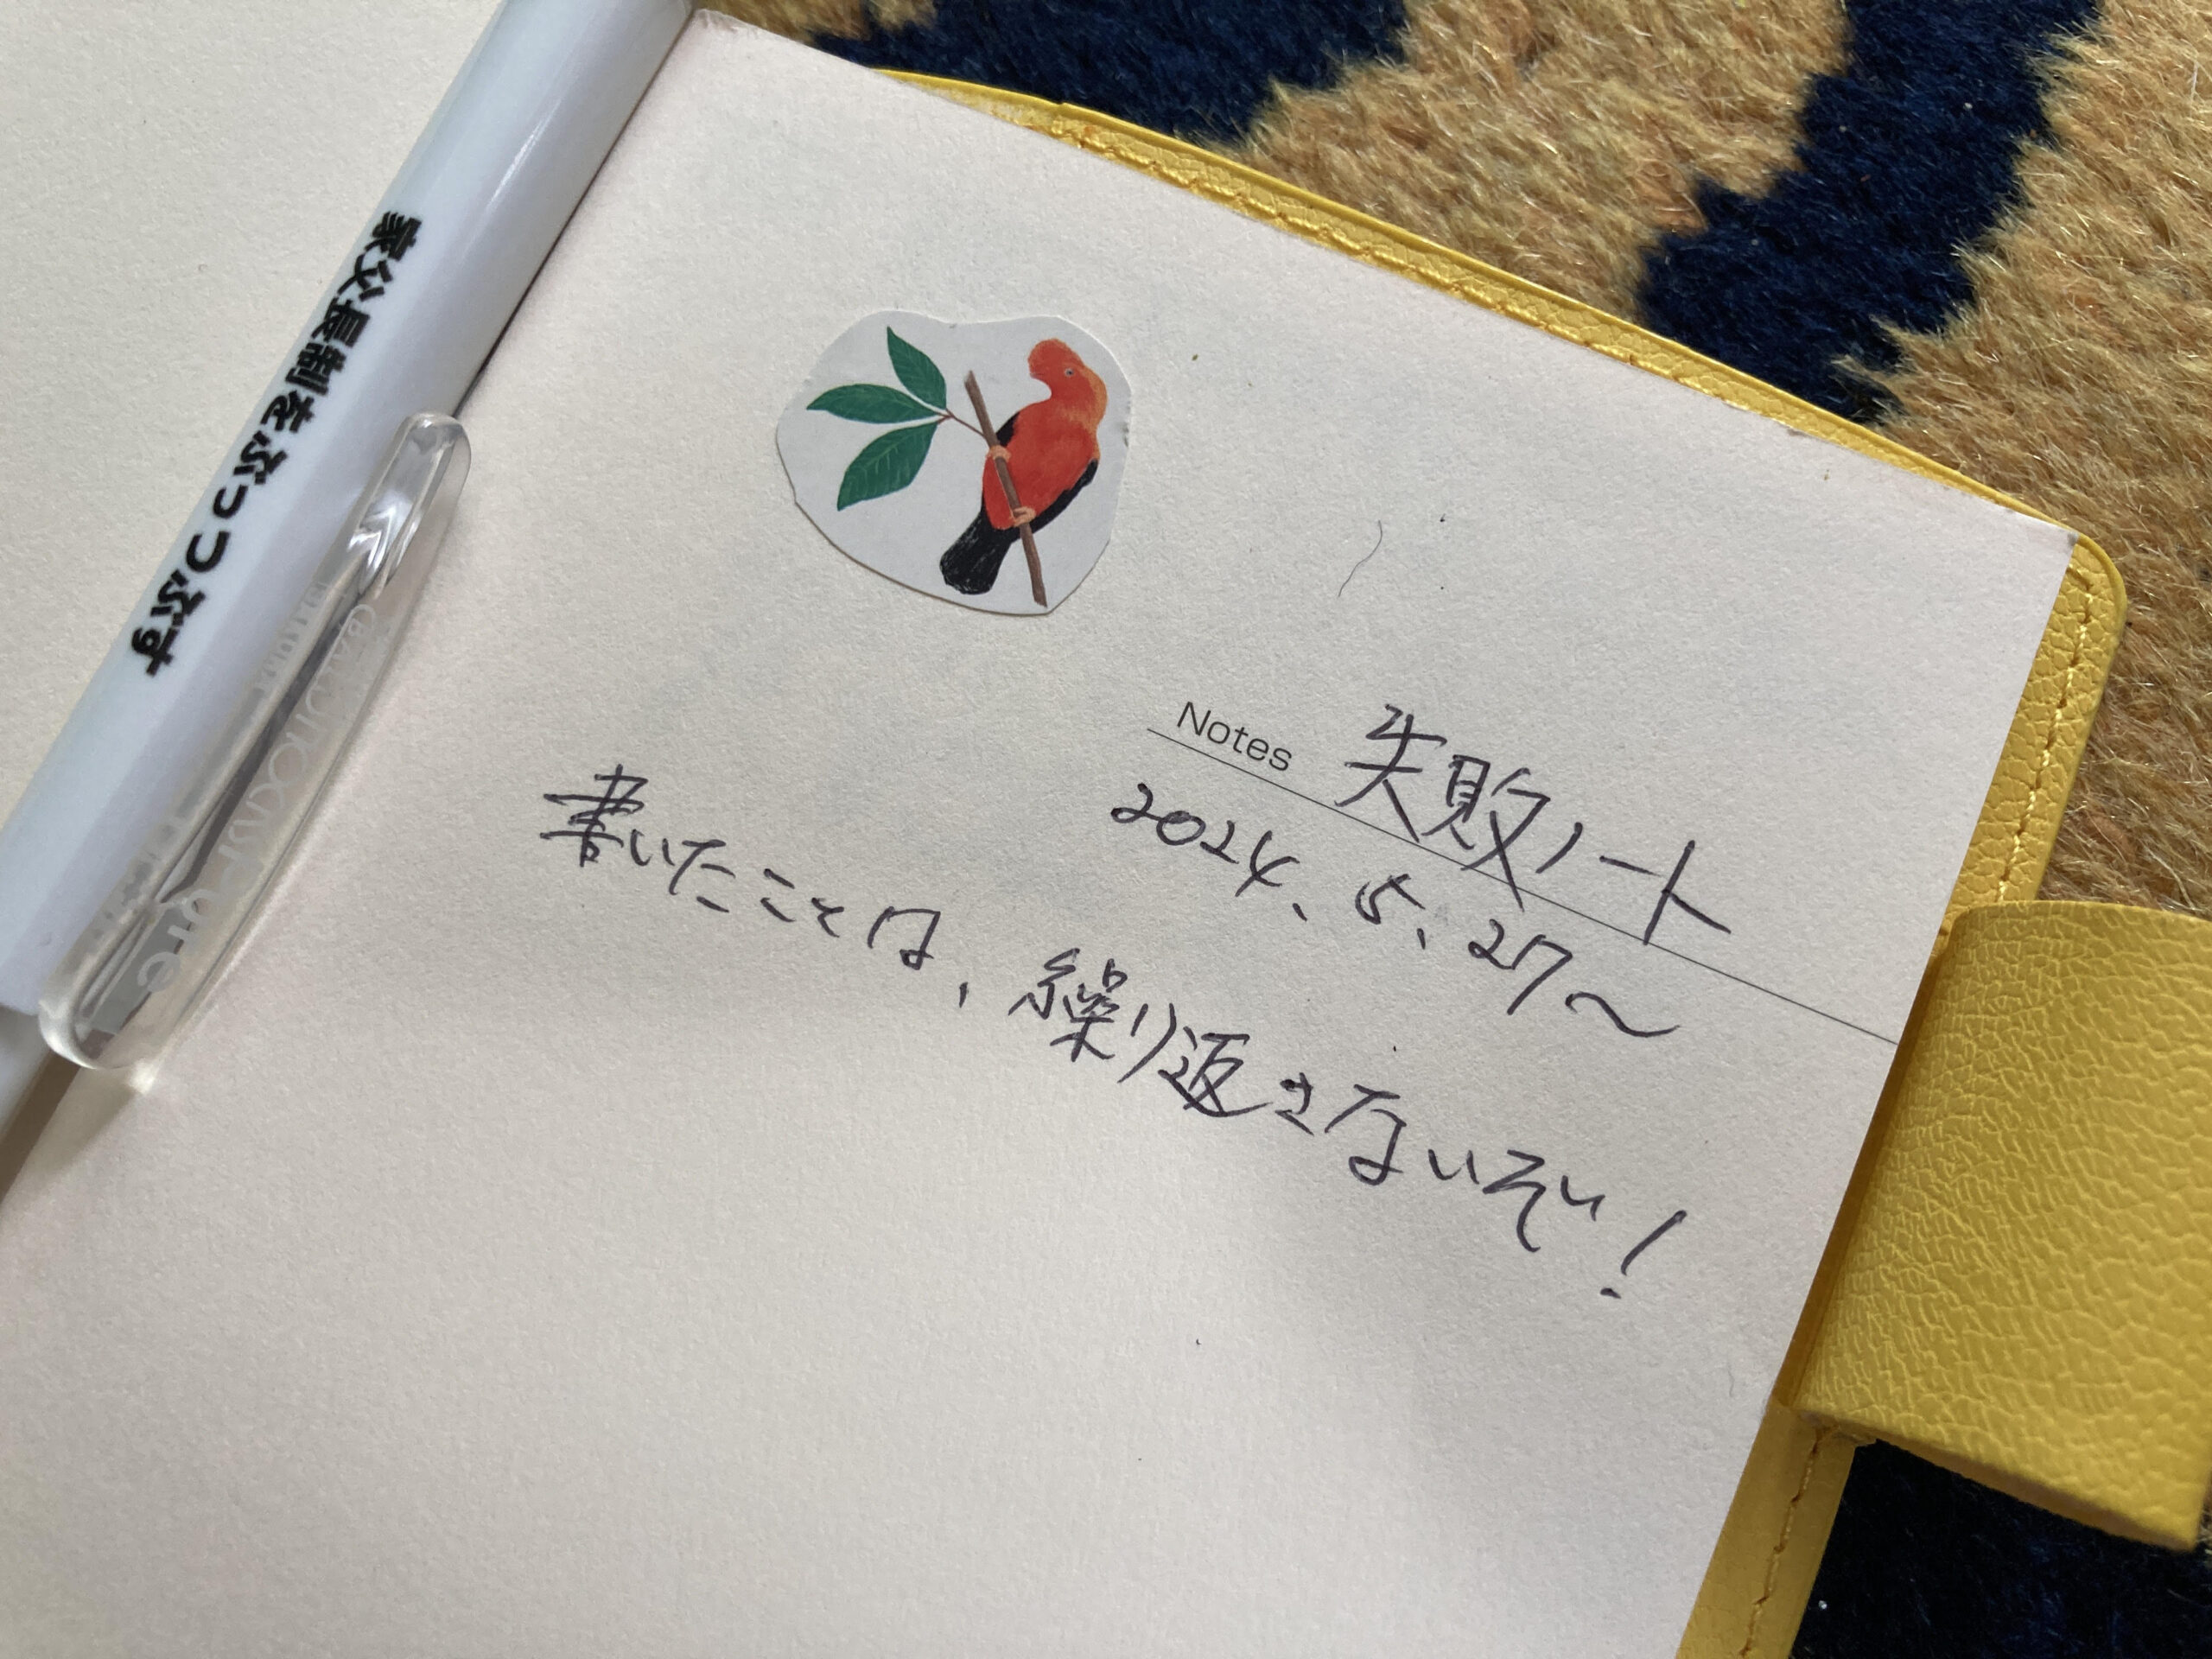 家父長制をぶっつぶす
Notes 失敗ノート
2024、5、27〜
書いたことは、繰り返さないぞい!